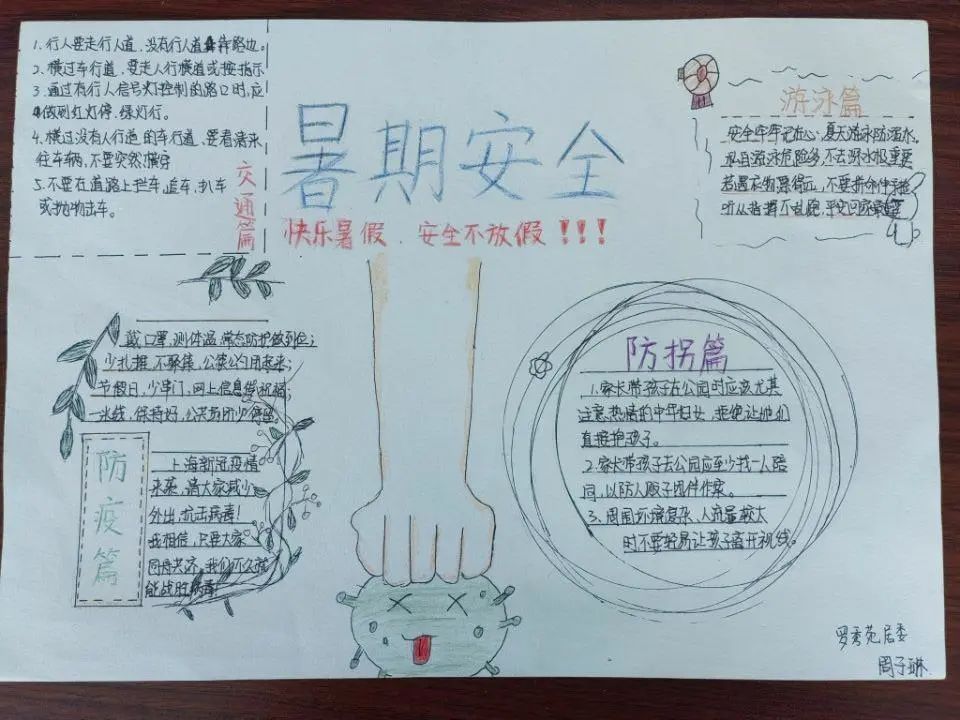 暑期安全
快乐暑假、安全不放假!!!
交通篇
1、行人要走行人道,没有行人道靠路边。
2、横过车行道,要走人行横道或按指示
3、通过有行人信号灯控制的路口时,应
做到红灯停、绿灯行。
4、横过没有人行道的车行道,要看清来
往车辆,不要突然横穿
5、不要在道路上拦车、追车、扒车
或抛物击车。
游泳篇
安全牢牢记在心,夏天游泳防溺水。
私自游泳危险多,不去深水极重要
听从指挥不乱跑,平安回家
防疫篇
戴口罩,测体温,常态防护做到位;
少扎堆,不聚集,公筷公勺用起来;
节假日,少串门,网上信息
一米线,保持好,公共场所少停留
上海新冠疫情
来袭,请大家减少
外出,抗击病毒!
我相信,只要大家
同舟共济,我们不久就
能战胜病毒!
防拐篇
1、家长带孩子去公园时应该尤其
注意热情的中年妇女,拒绝让她们
直接抱孩子。
2、家长带孩子去公园应至少找一人陪
同,以防人贩子团伙作案。
3、周围环境复杂、人流量较大
时不要轻易让孩子离开视线。
罗秀苑居委
周子琳